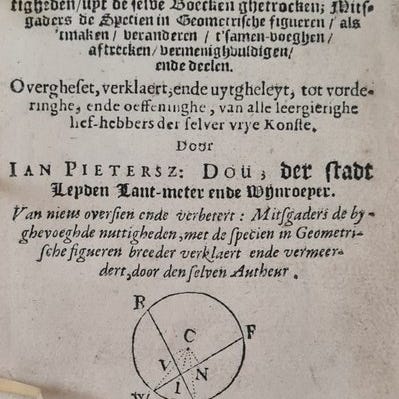 tigheden/uyt de selve Boecken ghetrocken; Mits-
gaders de Specien in Geometrische figueren / als
't maken / veranderen / t'samen-voeghen /
aftrecken / vermenighvuldigen /
ende deelen.
Overgheset, verklaert, ende uytgheleyt, tot vorde-
ringhe, ende oeffeninghe, van alle leergierighe
lief-hebbers der selver vrye Konste.
Door
IAN PIETERSZ: DOU; der stadt
Leyden Lant-meter ende Wijnroeper.
Van nieus oversien ende verbetert: Mitsgaders de by-
ghevoeghde nuttigheden, met de specien in Geometri-
sche figueren breeder verklaert ende vermeer-
dert, door den selven Autheur.
B
C
F
V
N
I